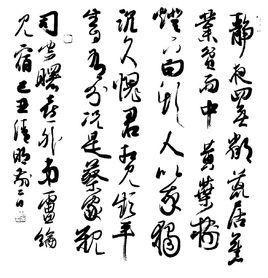 靜夜四無鄰荒居舊
業貧雨中黃葉樹
燈下白頭人以我獨
沉久愧君相見頻平
生自有分況是蔡家親
司空曙喜外弟盧綸
見宿己丑清明前二日